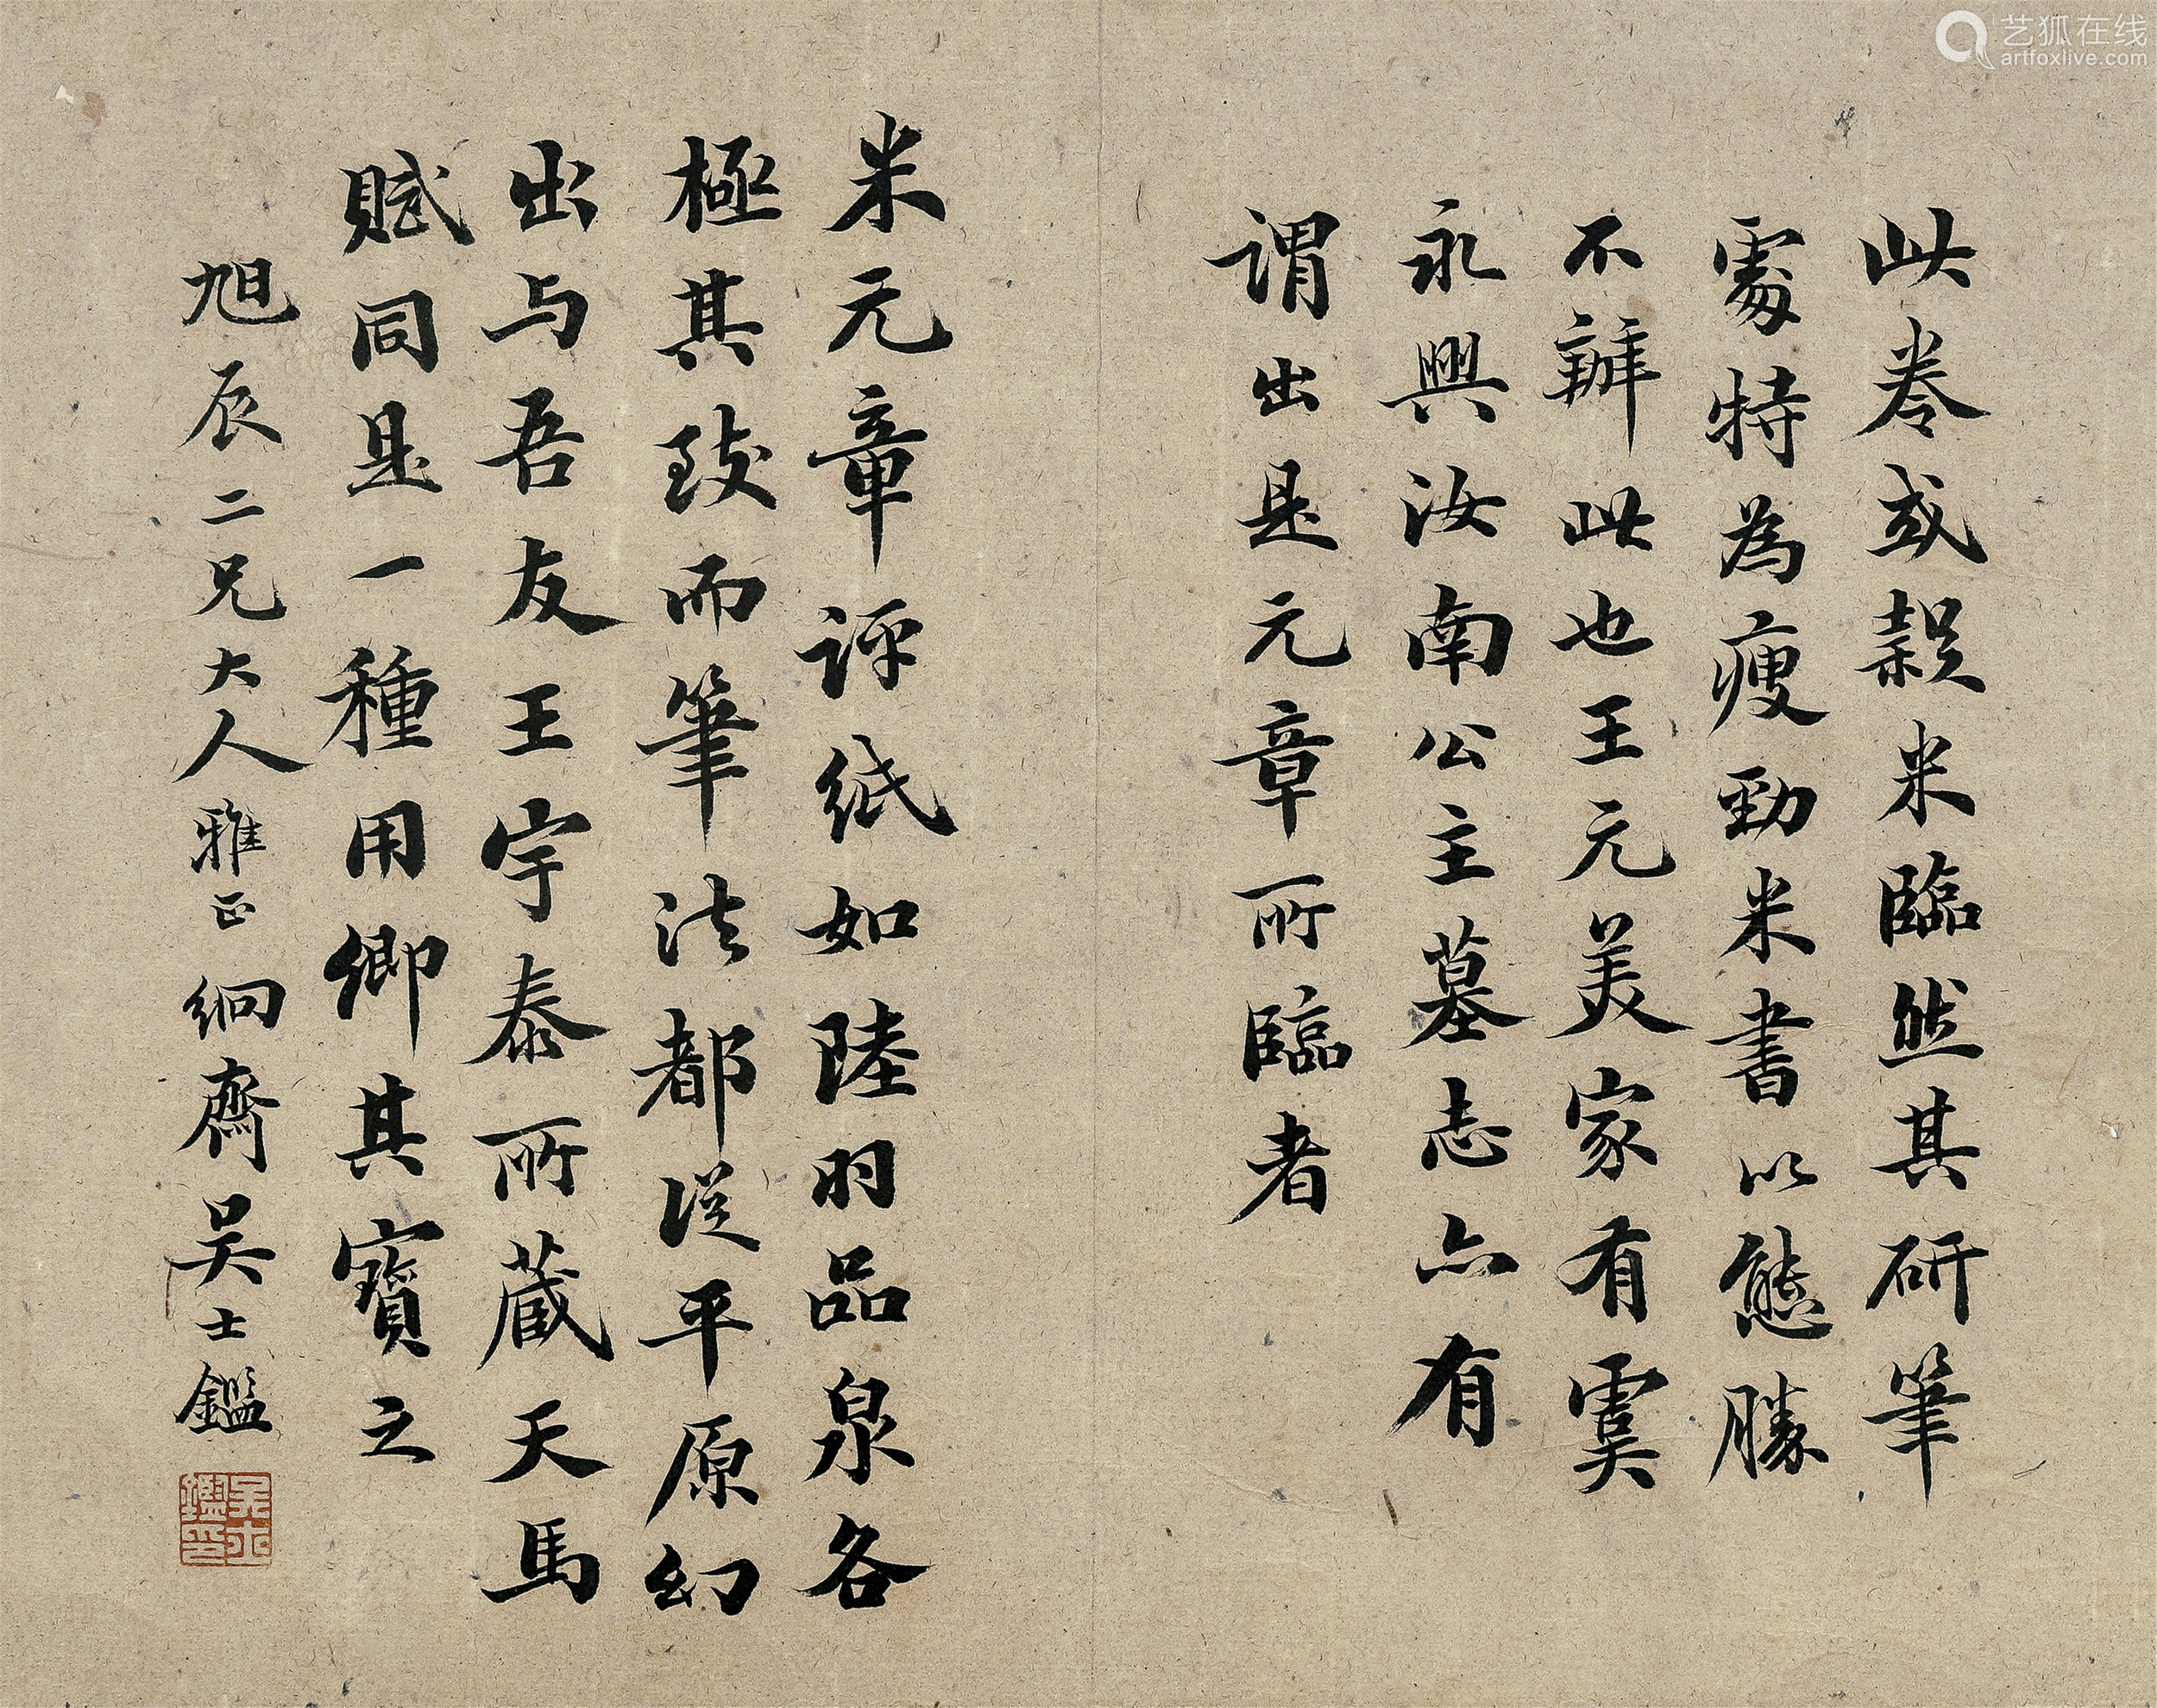 此卷或疑米臨然其研筆
處特為瘦勁米書以態勝
不辦此也王元美家有虞
永興汝南公主墓志亦有
謂出是元章所臨者
米元章評紙如陸羽品泉各
極其致而筆法都從平原幻
出与吾友王宇泰所蔵天馬
賦同是一種用卿其寶之
旭辰二兄大人雅正 絅齋吳士鑑
吳士鑑印
艺狐在线
artfoxlive.com